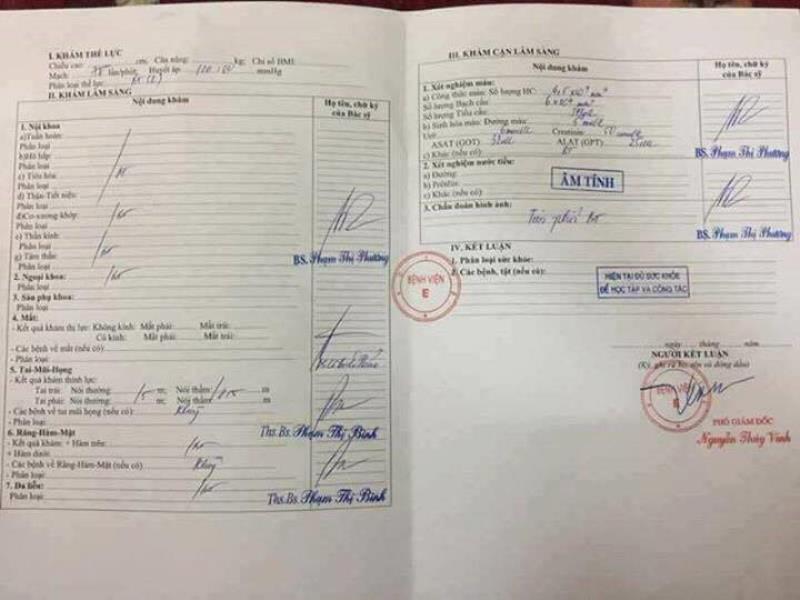 I. KHÁM THỂ LỰC
Chiều cao: cm; Cân nặng: kg; Chỉ số BMI:
Mạch: lần/phút; Huyết áp: 120/ mmHg
Phân loại thể lực:
II. KHÁM LÂM SÀNG
Nội dung khám
Họ tên, chữ ký
của Bác sỹ
1. Nội khoa
a) Tuần hoàn:
Phân loại
b) Hô hấp:
Phân loại
c) Tiêu hóa:
Phân loại
d) Thận-Tiết niệu:
Phân loại
đ) Cơ-xương khớp:
Phân loại
e) Thần kinh:
Phân loại
g) Tâm thần:
Phân loại
BS. Phạm Thị Phương
2. Ngoại khoa:
Phân loại
3. Sản phụ khoa:
Phân loại
4. Mắt:
- Kết quả khám thị lực: Không kính: Mắt phải: Mắt trái:
Có kính: Mắt phải: Mắt trái:
- Các bệnh về mắt (nếu có):
- Phân loại:
5. Tai-Mũi-Họng
- Kết quả khám thính lực:
Tai trái: Nói thường: 5 m; Nói thầm: 0,5 m
Tai phải: Nói thường: m; Nói thầm: m
- Các bệnh về tai mũi họng (nếu có): Không
- Phân loại:
Ths.Bs. Phạm Thị Bình
6. Răng-Hàm-Mặt
- Kết quả khám: + Hàm trên:
+ Hàm dưới:
- Các bệnh về Răng-Hàm-Mặt (nếu có) Không
- Phân loại:
7. Da liễu:
Phân loại:
Ths.Bs. Phạm Thị Bình
III. KHÁM CẬN LÂM SÀNG
Nội dung khám
Họ tên, chữ ký
của Bác sỹ
1. Xét nghiệm máu:
a) Công thức máu: Số lượng HC:
Số lượng Bạch cầu:
Số lượng Tiểu cầu:
b) Sinh hóa máu: Đường máu:
Urê: Creatinin:
ASAT (GOT) ALAT (GPT)
c) Khác (nếu có):
BS. Phạm Thị Phương
2. Xét nghiệm nước tiểu:
a) Đường:
b) Prôtêin:
c) Khác (nếu có)
ÂM TÍNH
3. Chẩn đoán hình ảnh:
Tim phổi
BS. Phạm Thị Phương
IV. KẾT LUẬN
1. Phân loại sức khỏe:
2. Các bệnh, tật (nếu có):
HIỆN TẠI ĐỦ SỨC KHỎE
ĐỂ HỌC TẬP VÀ CÔNG TÁC
BỆNH VIỆN
E
ngày tháng năm
NGƯỜI KẾT LUẬN
(Ký, ghi rõ họ tên và đóng dấu)
BỆNH VIỆN
E
PHÓ GIÁM ĐỐC
Nguyễn Thúy Vinh